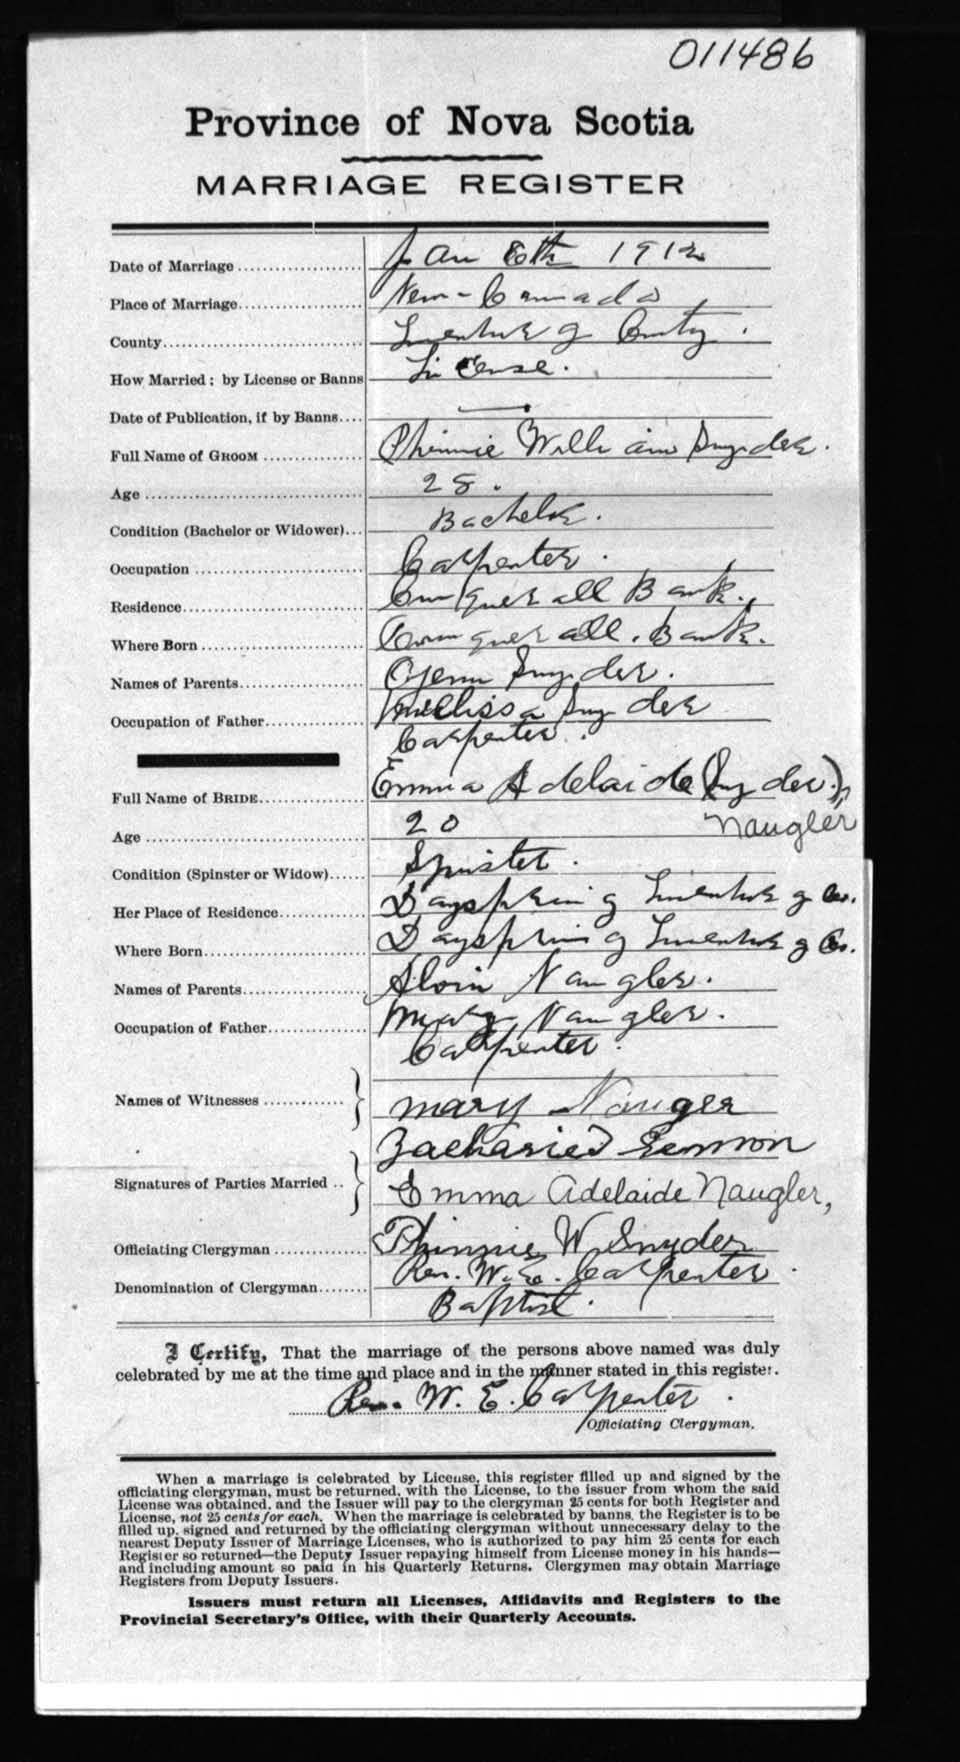 011486
Province of Nova Scotia
MARRIAGE REGISTER
Date of Marriage Jan 6th 1912
Place of Marriage New-Canada
County Lunenburg County.
How Married: by License or Banns License.
Date of Publication, if by Banns —
Full Name of GROOM Phinnie William Snyder.
Age 28.
Condition (Bachelor or Widower) Bachelor.
Occupation Carpenter.
Residence Conquerall Bank.
Where Born Conquerall. Bank.
Names of Parents Snyder.
Occupation of Father Millissa Snyder
Carpenter.
Full Name of BRIDE Emma Adelaide (Snyder.)
Age 20 Naugler
Condition (Spinster or Widow) Spinster.
Her Place of Residence Dayspring Lunenburg Co.
Where Born Dayspring Lunenburg Co.
Names of Parents Alvin Naugler.
Occupation of Father Mary Naugler.
Carpenter.
Names of Witnesses Mary Nauger
Zacharied
Signatures of Parties Married Emma Adelaide Naugler,
Officiating Clergyman Phinnie W Snyder
Rev. W. E. Carpenter.
Denomination of Clergyman Baptist.
I Certify, That the marriage of the persons above named was duly
celebrated by me at the time and place and in the manner stated in this register.
Rev. W. E. Carpenter.
Officiating Clergyman.
When a marriage is celebrated by License, this register filled up and signed by the
officiating clergyman, must be returned, with the License, to the issuer from whom the said
License was obtained, and the Issuer will pay to the clergyman 25 cents for both Register and
License, not 25 cents for each. When the marriage is celebrated by banns, the Register is to be
filled up, signed and returned by the officiating clergyman without unnecessary delay to the
nearest Deputy Issuer of Marriage Licenses, who is authorized to pay him 25 cents for each
Register so returned—the Deputy Issuer repaying himself from License money in his hands—
and including amount so paid in his Quarterly Returns. Clergymen may obtain Marriage
Registers from Deputy Issuers.
Issuers must return all Licenses, Affidavits and Registers to the
Provincial Secretary's Office, with their Quarterly Accounts.